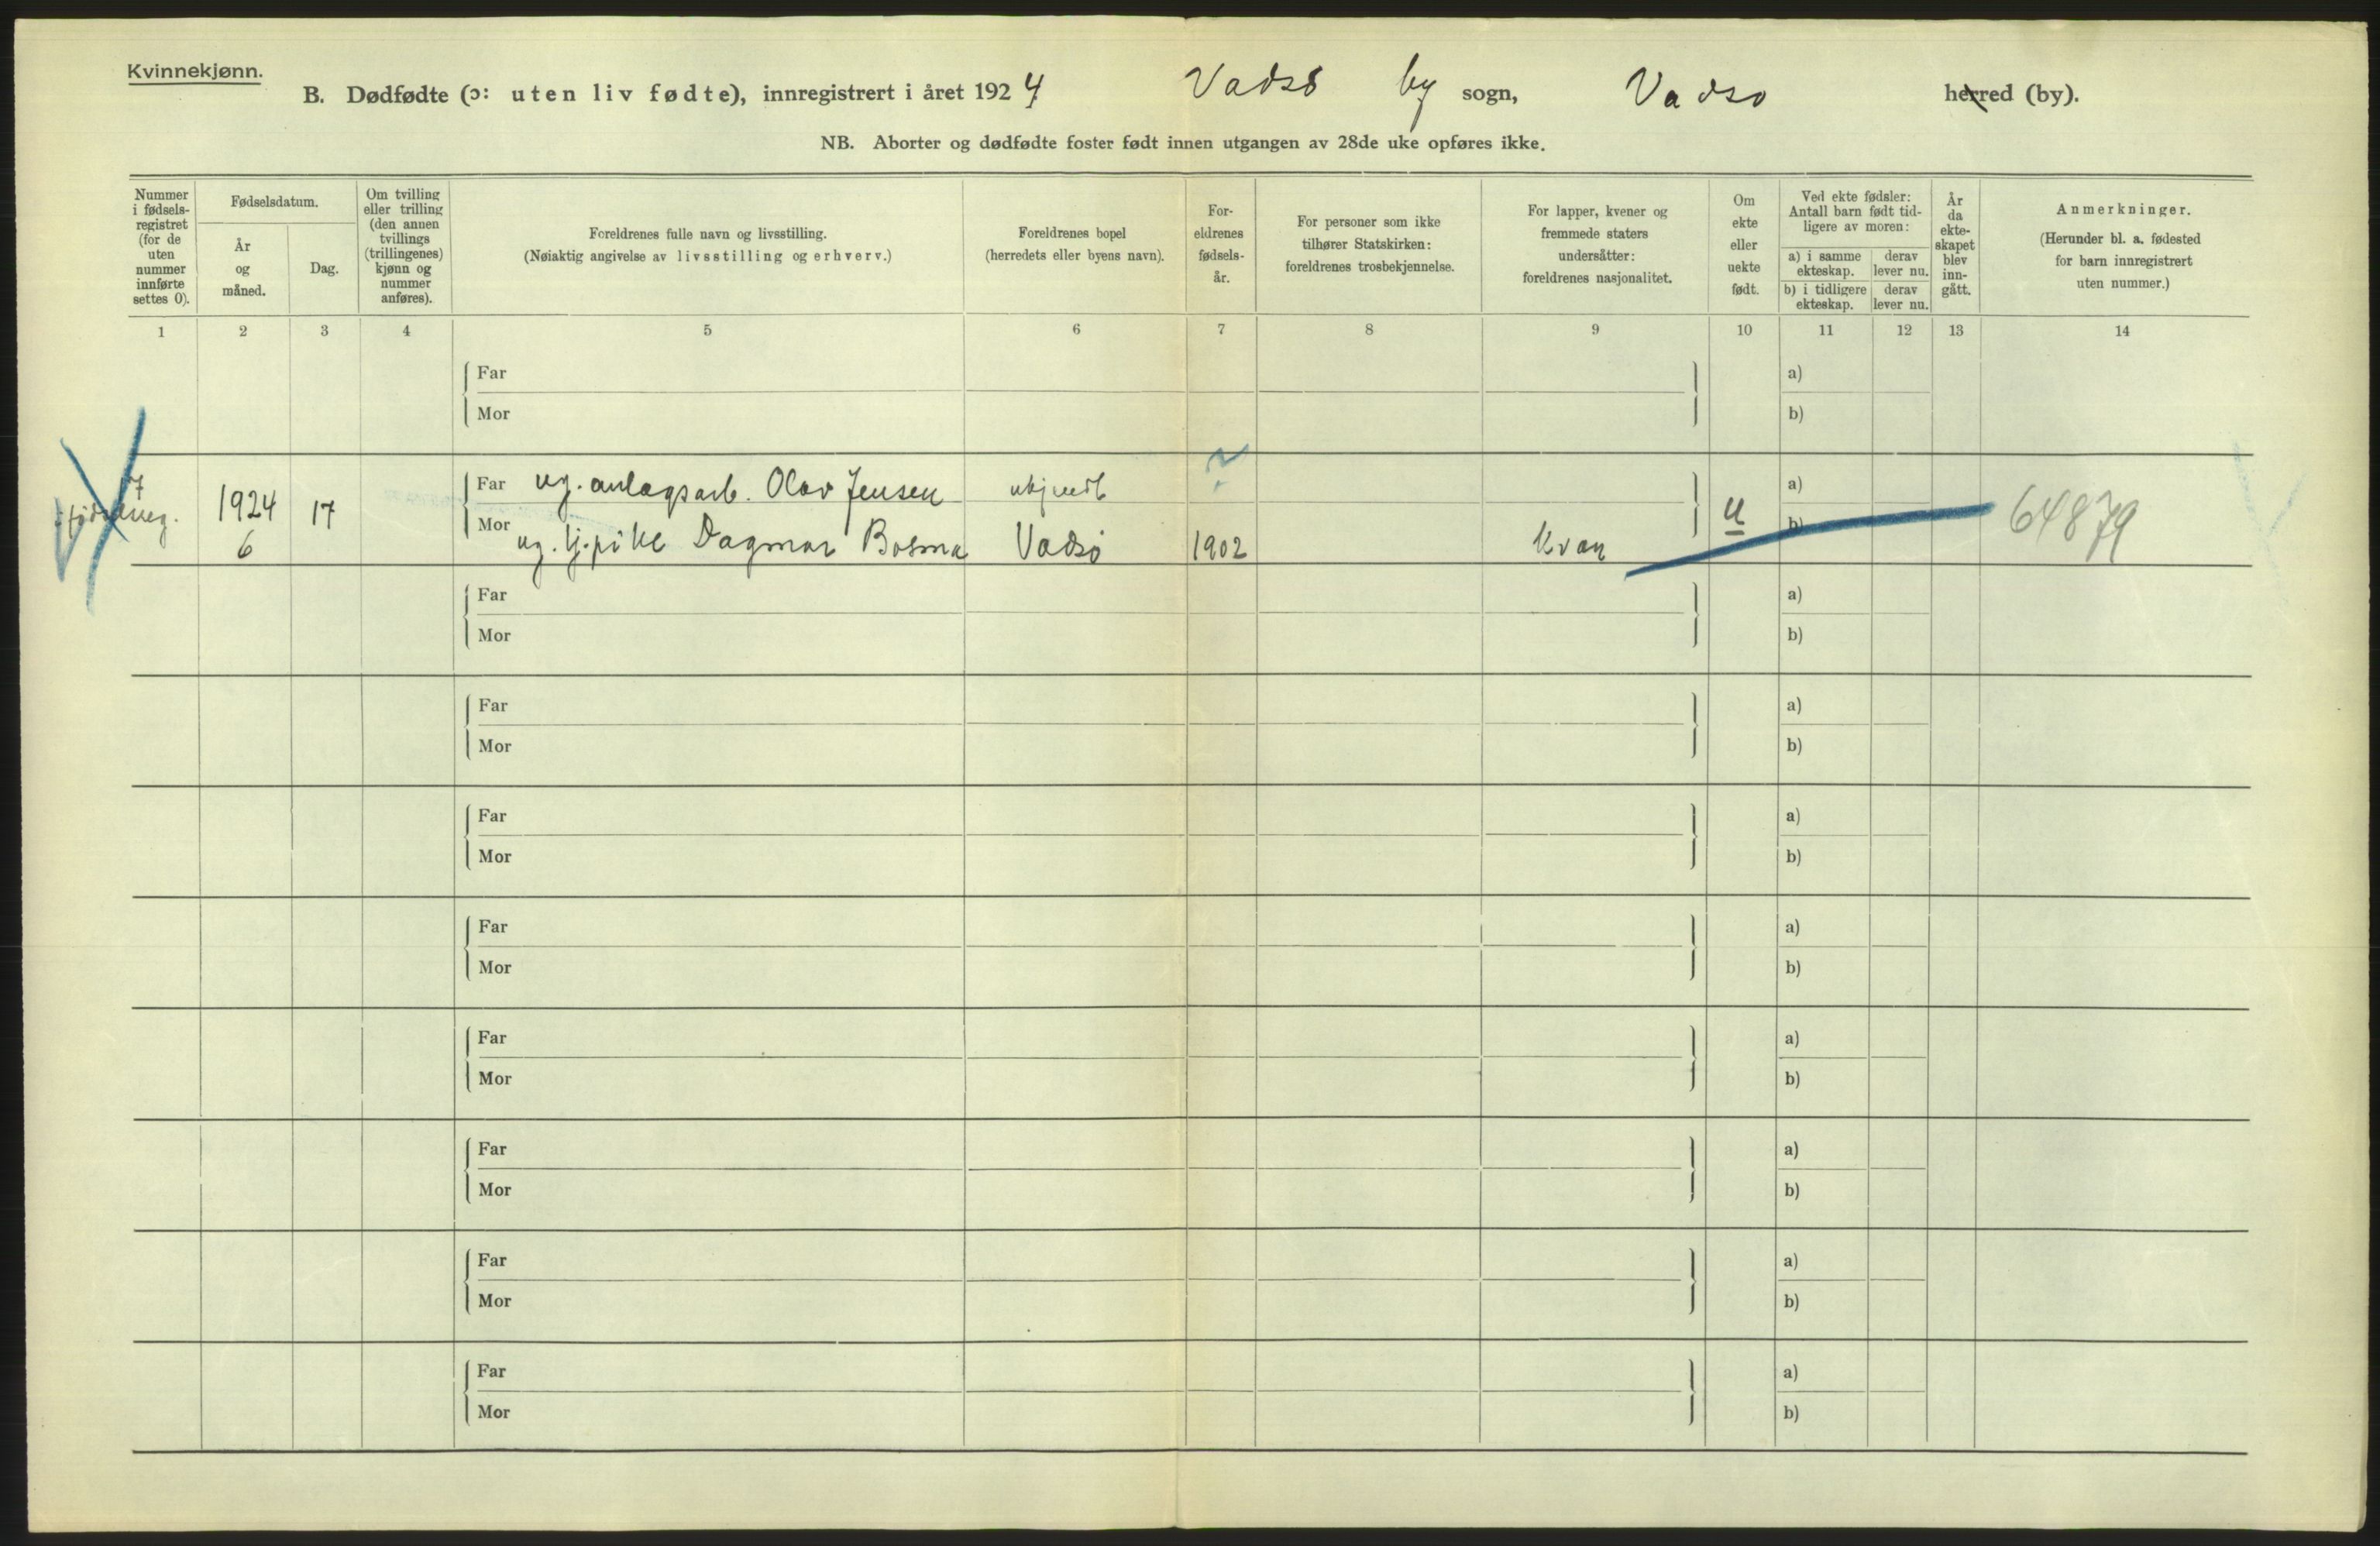 Kvinnekjønn.
B. Dødfødte (ɔ: uten liv fødte), innregistrert i året 1924 Vadsö by sogn, Vadso herred (by).
NB. Aborter og dødfødte foster født innen utgangen av 28de uke opføres ikke.
Nummer i fødsels-registret (for de uten nummer innførte settes 0).
Fødselsdatum.
År og måned.
Dag.
Om tvilling eller trilling (den annen tvillings (trillingenes) kjønn og nummer anføres).
Foreldrenes fulle navn og livsstilling.
(Nøiaktig angivelse av livsstilling og erhverv.)
Foreldrenes bopel
(herredets eller byens navn).
For-eldrenes fødsels-år.
For personer som ikke tilhører Statskirken: foreldrenes trosbekjennelse.
For lapper, kvener og fremmede staters undersåtter: foreldrenes nasjonalitet.
Om ekte eller uekte født.
Ved ekte fødsler: Antall barn født tid-ligere av moren:
a) i samme ekteskap.
derav lever nu.
b) i tidligere ekteskap.
derav lever nu.
År da ekte-skapet blev inn-gått.
Anmerkninger.
(Herunder bl. a. fødested for barn innregistrert uten nummer.)
1 2 3 4 5 6 7 8 9 10 11 12 13 14
Far a)
Mor b)
7 1924 17 Far ug. anlagsarb. Olav Jensen ukjendt ? u a)
6 Mor ug. tj.pike Dagmar Bosma Vadsö 1902 Kvæn b) 64879
Far a)
Mor b)
Far a)
Mor b)
Far a)
Mor b)
Far a)
Mor b)
Far a)
Mor b)
Far a)
Mor b)
Far a)
Mor b)
Far a)
Mor b)